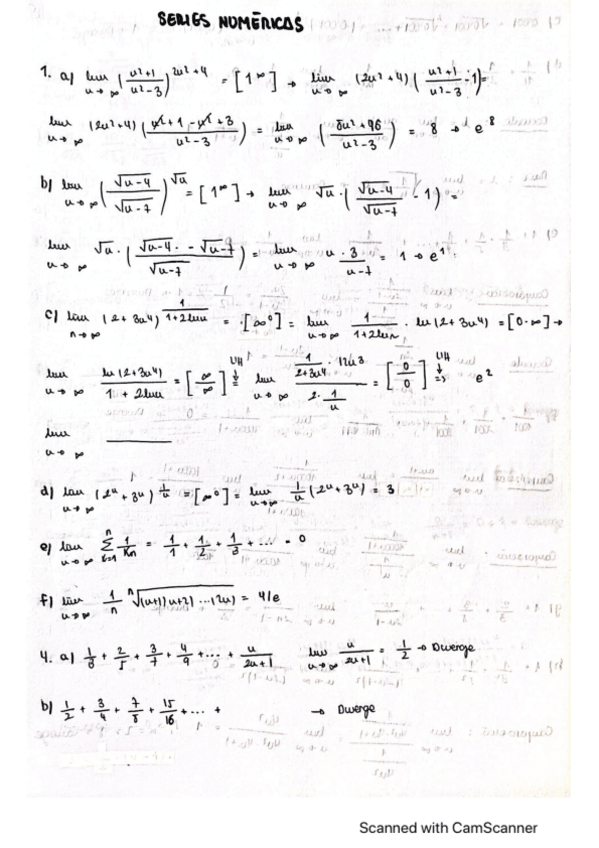 SERIES NUMÉRICAS
1. a) lim n→∞ (n²+1 / n²-3)^(2n²+4) = [1^∞] → lim n→∞ (2n²+4) (n²+1 / n²-3 - 1) =
lim n→∞ (2n²+4) (n²+1-n²+3 / n²-3) = lim n→∞ (8n²+16 / n²-3) = 8 → e⁸
b) lim n→∞ (√n-4 / √n-7)^√n = [1^∞] → lim n→∞ √n · (√n-4 / √n-7 - 1) =
lim n→∞ √n · (√n-4 - √n-7 / √n-7) = lim n→∞ n·3 / n-7 = 1 → e¹
c) lim n→∞ (2+3n⁴)^(1 / 1+2ln n) = [∞⁰] = lim n→∞ 1 / 1+2ln n · ln(2+3n⁴) = [0·∞] →
lim n→∞ ln(2+3n⁴) / 1+2ln n = [∞/∞] L'H = lim n→∞ 1 / 2+3n⁴ · 12n³ / 2 · 1/n = [0/0] L'H => e²
lim n→∞
d) lim n→∞ (2ⁿ+3ⁿ)^(1/n) = [∞⁰] = lim n→∞ 1/n (2ⁿ+3ⁿ) = 3
e) lim n→∞ Σ k=1 n 1/Kn = 1/1 + 1/2 + 1/3 + ... = 0
f) lim n→∞ 1/n ⁿ√(n+1)(n+2)...(2n) = 4/e
4. a) 1/3 + 2/5 + 3/7 + 4/9 + ... + n / 2n+1 lim n→∞ n / 2n+1 = 1/2 → Diverge
b) 1/2 + 3/4 + 7/8 + 15/16 + ... + → Diverge
Scanned with CamScanner